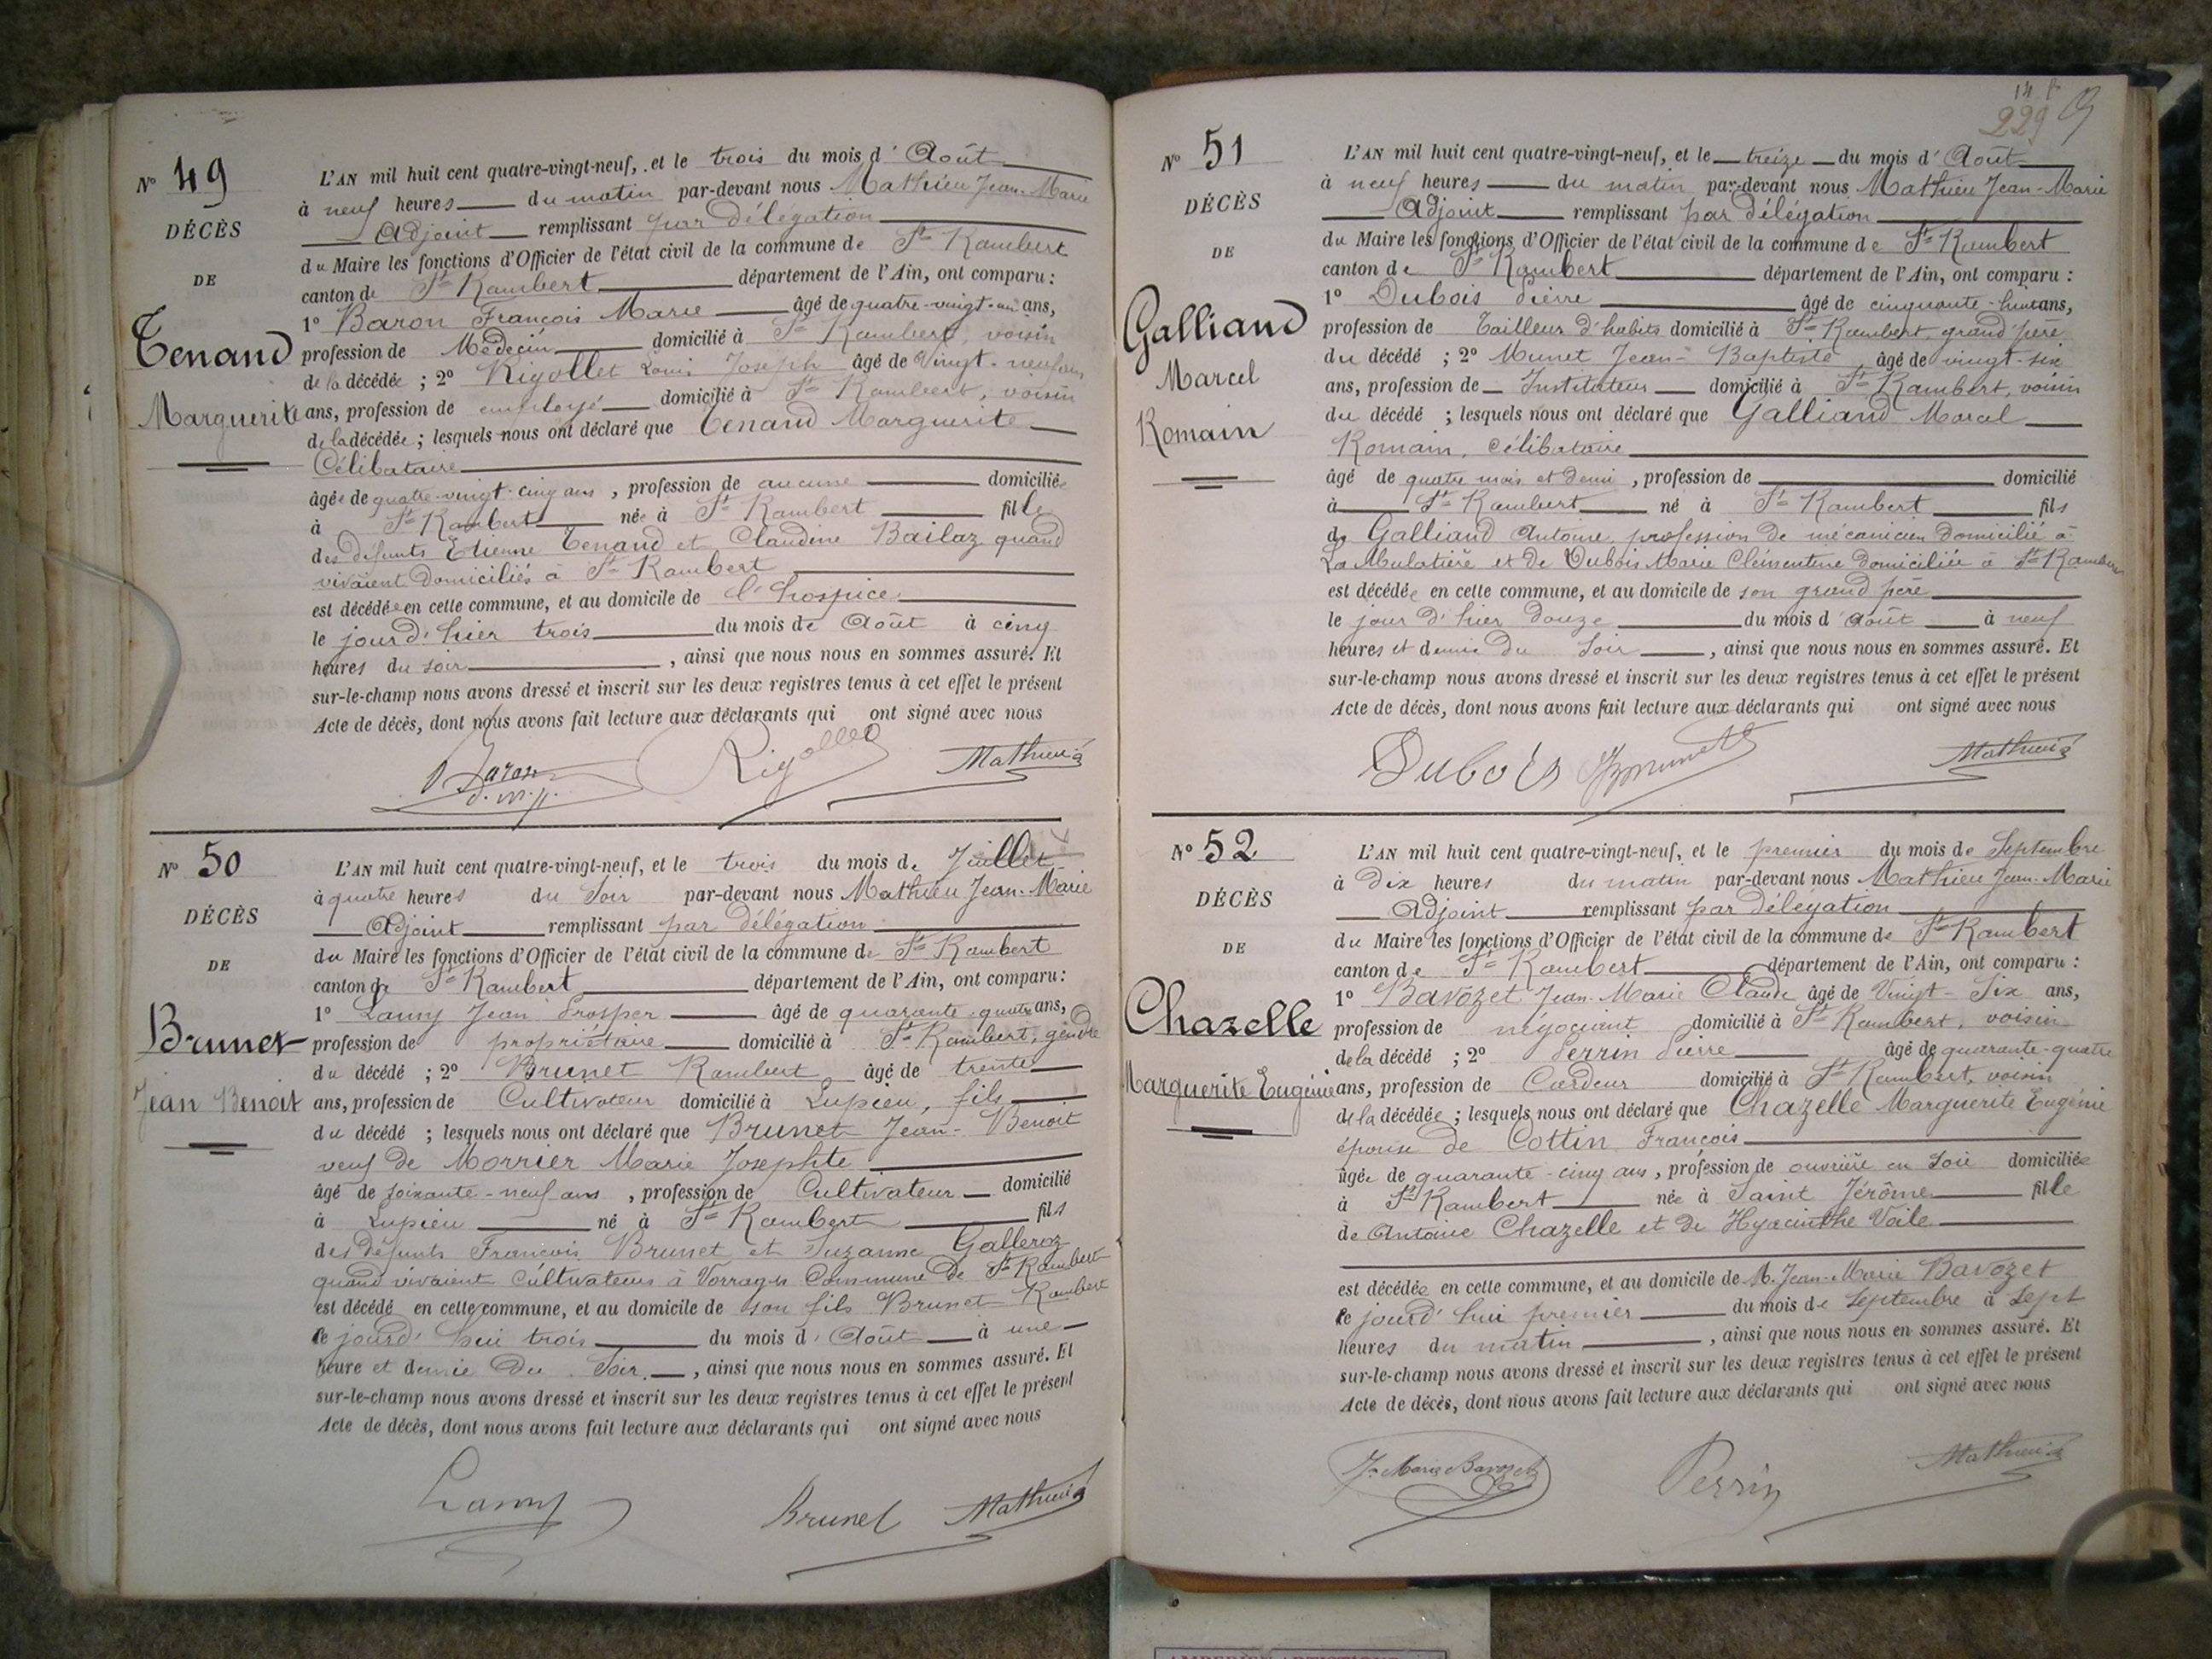 N° 49
DÉCÈS
DE
Tenand
Marguerite
L'AN mil huit cent quatre-vingt-neuf, et le trois du mois d'Août
à neuf heures du matin par-devant nous Mathieu Jean-Marie
Adjoint remplissant par délégation
du Maire les fonctions d'Officier de l'état civil de la commune de St Rambert
canton de St Rambert département de l'Ain, ont comparu :
1° Baron François Marie âgé de quatre-vingt-un ans,
profession de Médecin domicilié à St Rambert, voisin
de la décédée ; 2° Rigollet Louis Joseph âgé de Vingt-neuf ans
ans, profession de employé domicilié à St Rambert, voisin
de la décédée ; lesquels nous ont déclaré que Tenand Marguerite
Célibataire
âgée de quatre-vingt-cinq ans, profession de aucune domiciliée
à St Rambert née à St Rambert fille
des défunts Etienne Tenand et Claudine Bailaz quand
vivaient domiciliés à St Rambert
est décédée en cette commune, et au domicile de l'hospice
le jour d'hier trois du mois de Août à cinq
heures du soir, ainsi que nous nous en sommes assuré. Et
sur-le-champ nous avons dressé et inscrit sur les deux registres tenus à cet effet le présent
Acte de décès, dont nous avons fait lecture aux déclarants qui ont signé avec nous
Baron d.m.p. Rigollet Mathieu
N° 50
DÉCÈS
DE
Brunet
Jean Benoit
L'AN mil huit cent quatre-vingt-neuf, et le trois du mois de Juillet
à quatre heures du Soir par-devant nous Mathieu Jean-Marie
Adjoint remplissant par délégation
du Maire les fonctions d'Officier de l'état civil de la commune de St Rambert
canton de St Rambert département de l'Ain, ont comparu :
1° Lamy Jean Prosper âgé de quarante-quatre ans,
profession de propriétaire domicilié à St Rambert, gendre
du décédé ; 2° Brunet Rambert âgé de trente
ans, profession de Cultivateur domicilié à Lupieu, fils
du décédé ; lesquels nous ont déclaré que Brunet Jean-Benoit
veuf de Morrier Marie Josephte
âgé de soixante-neuf ans, profession de Cultivateur domicilié
à Lupieu né à St Rambert fils
des défunts François Brunet et Suzanne Galleroz
quand vivaient cultivateurs à Vorrages Commune de St Rambert
est décédé en cette commune, et au domicile de son fils Brunet Rambert
ce jourd'hui trois du mois d'Août à une
heure et demie du Soir, ainsi que nous nous en sommes assuré. Et
sur-le-champ nous avons dressé et inscrit sur les deux registres tenus à cet effet le présent
Acte de décès, dont nous avons fait lecture aux déclarants qui ont signé avec nous
Lamy Brunet Mathieu
229
N° 51
DÉCÈS
DE
Galliand
Marcel
Romain
L'AN mil huit cent quatre-vingt-neuf, et le treize du mois d'Août
à neuf heures du matin par-devant nous Mathieu Jean-Marie
Adjoint remplissant par délégation
du Maire les fonctions d'Officier de l'état civil de la commune de St Rambert
canton de St Rambert département de l'Ain, ont comparu :
1° Dubois Pierre âgé de cinquante-huit ans,
profession de Tailleur d'habits domicilié à St Rambert, grand père
du décédé ; 2° Munet Jean-Baptiste âgé de vingt-six
ans, profession de Instituteur domicilié à St Rambert, voisin
du décédé ; lesquels nous ont déclaré que Galliand Marcel
Romain, célibataire
âgé de quatre mois et demi, profession de domicilié
à St Rambert né à St Rambert fils
de Galliand Antoine, profession de mécanicien domicilié à
La Mulatière et de Dubois Marie Clémentine domiciliée à St Rambert
est décédé en cette commune, et au domicile de son grand père
le jour d'hier douze du mois d'Août à neuf
heures et demie du Soir, ainsi que nous nous en sommes assuré. Et
sur-le-champ nous avons dressé et inscrit sur les deux registres tenus à cet effet le présent
Acte de décès, dont nous avons fait lecture aux déclarants qui ont signé avec nous
Dubois Mathieu
N° 52
DÉCÈS
DE
Chazelle
Marguerite Eugénie
L'AN mil huit cent quatre-vingt-neuf, et le premier du mois de Septembre
à Dix heures du matin par-devant nous Mathieu Jean-Marie
Adjoint remplissant par délégation
du Maire les fonctions d'Officier de l'état civil de la commune de St Rambert
canton de St Rambert département de l'Ain, ont comparu :
1° Bavozet Jean-Marie Claude âgé de Vingt-Six ans,
profession de négociant domicilié à St Rambert, voisin
de la décédé ; 2° Perrin Pierre âgé de quarante-quatre
ans, profession de Cardeur domicilié à St Rambert, voisin
de la décédée ; lesquels nous ont déclaré que Chazelle Marguerite Eugénie
épouse de Cottin François
âgée de quarante-cinq ans, profession de ouvrière en soie domiciliée
à St Rambert née à Saint Jérôme fille
de Antoine Chazelle et de Hyacinthe Voile
est décédée en cette commune, et au domicile de M. Jean-Marie Bavozet
ce jourd'hui premier du mois de Septembre à Sept
heures du matin, ainsi que nous nous en sommes assuré. Et
sur-le-champ nous avons dressé et inscrit sur les deux registres tenus à cet effet le présent
Acte de décès, dont nous avons fait lecture aux déclarants qui ont signé avec nous
Jn Marie Bavozet Perrin Mathieu